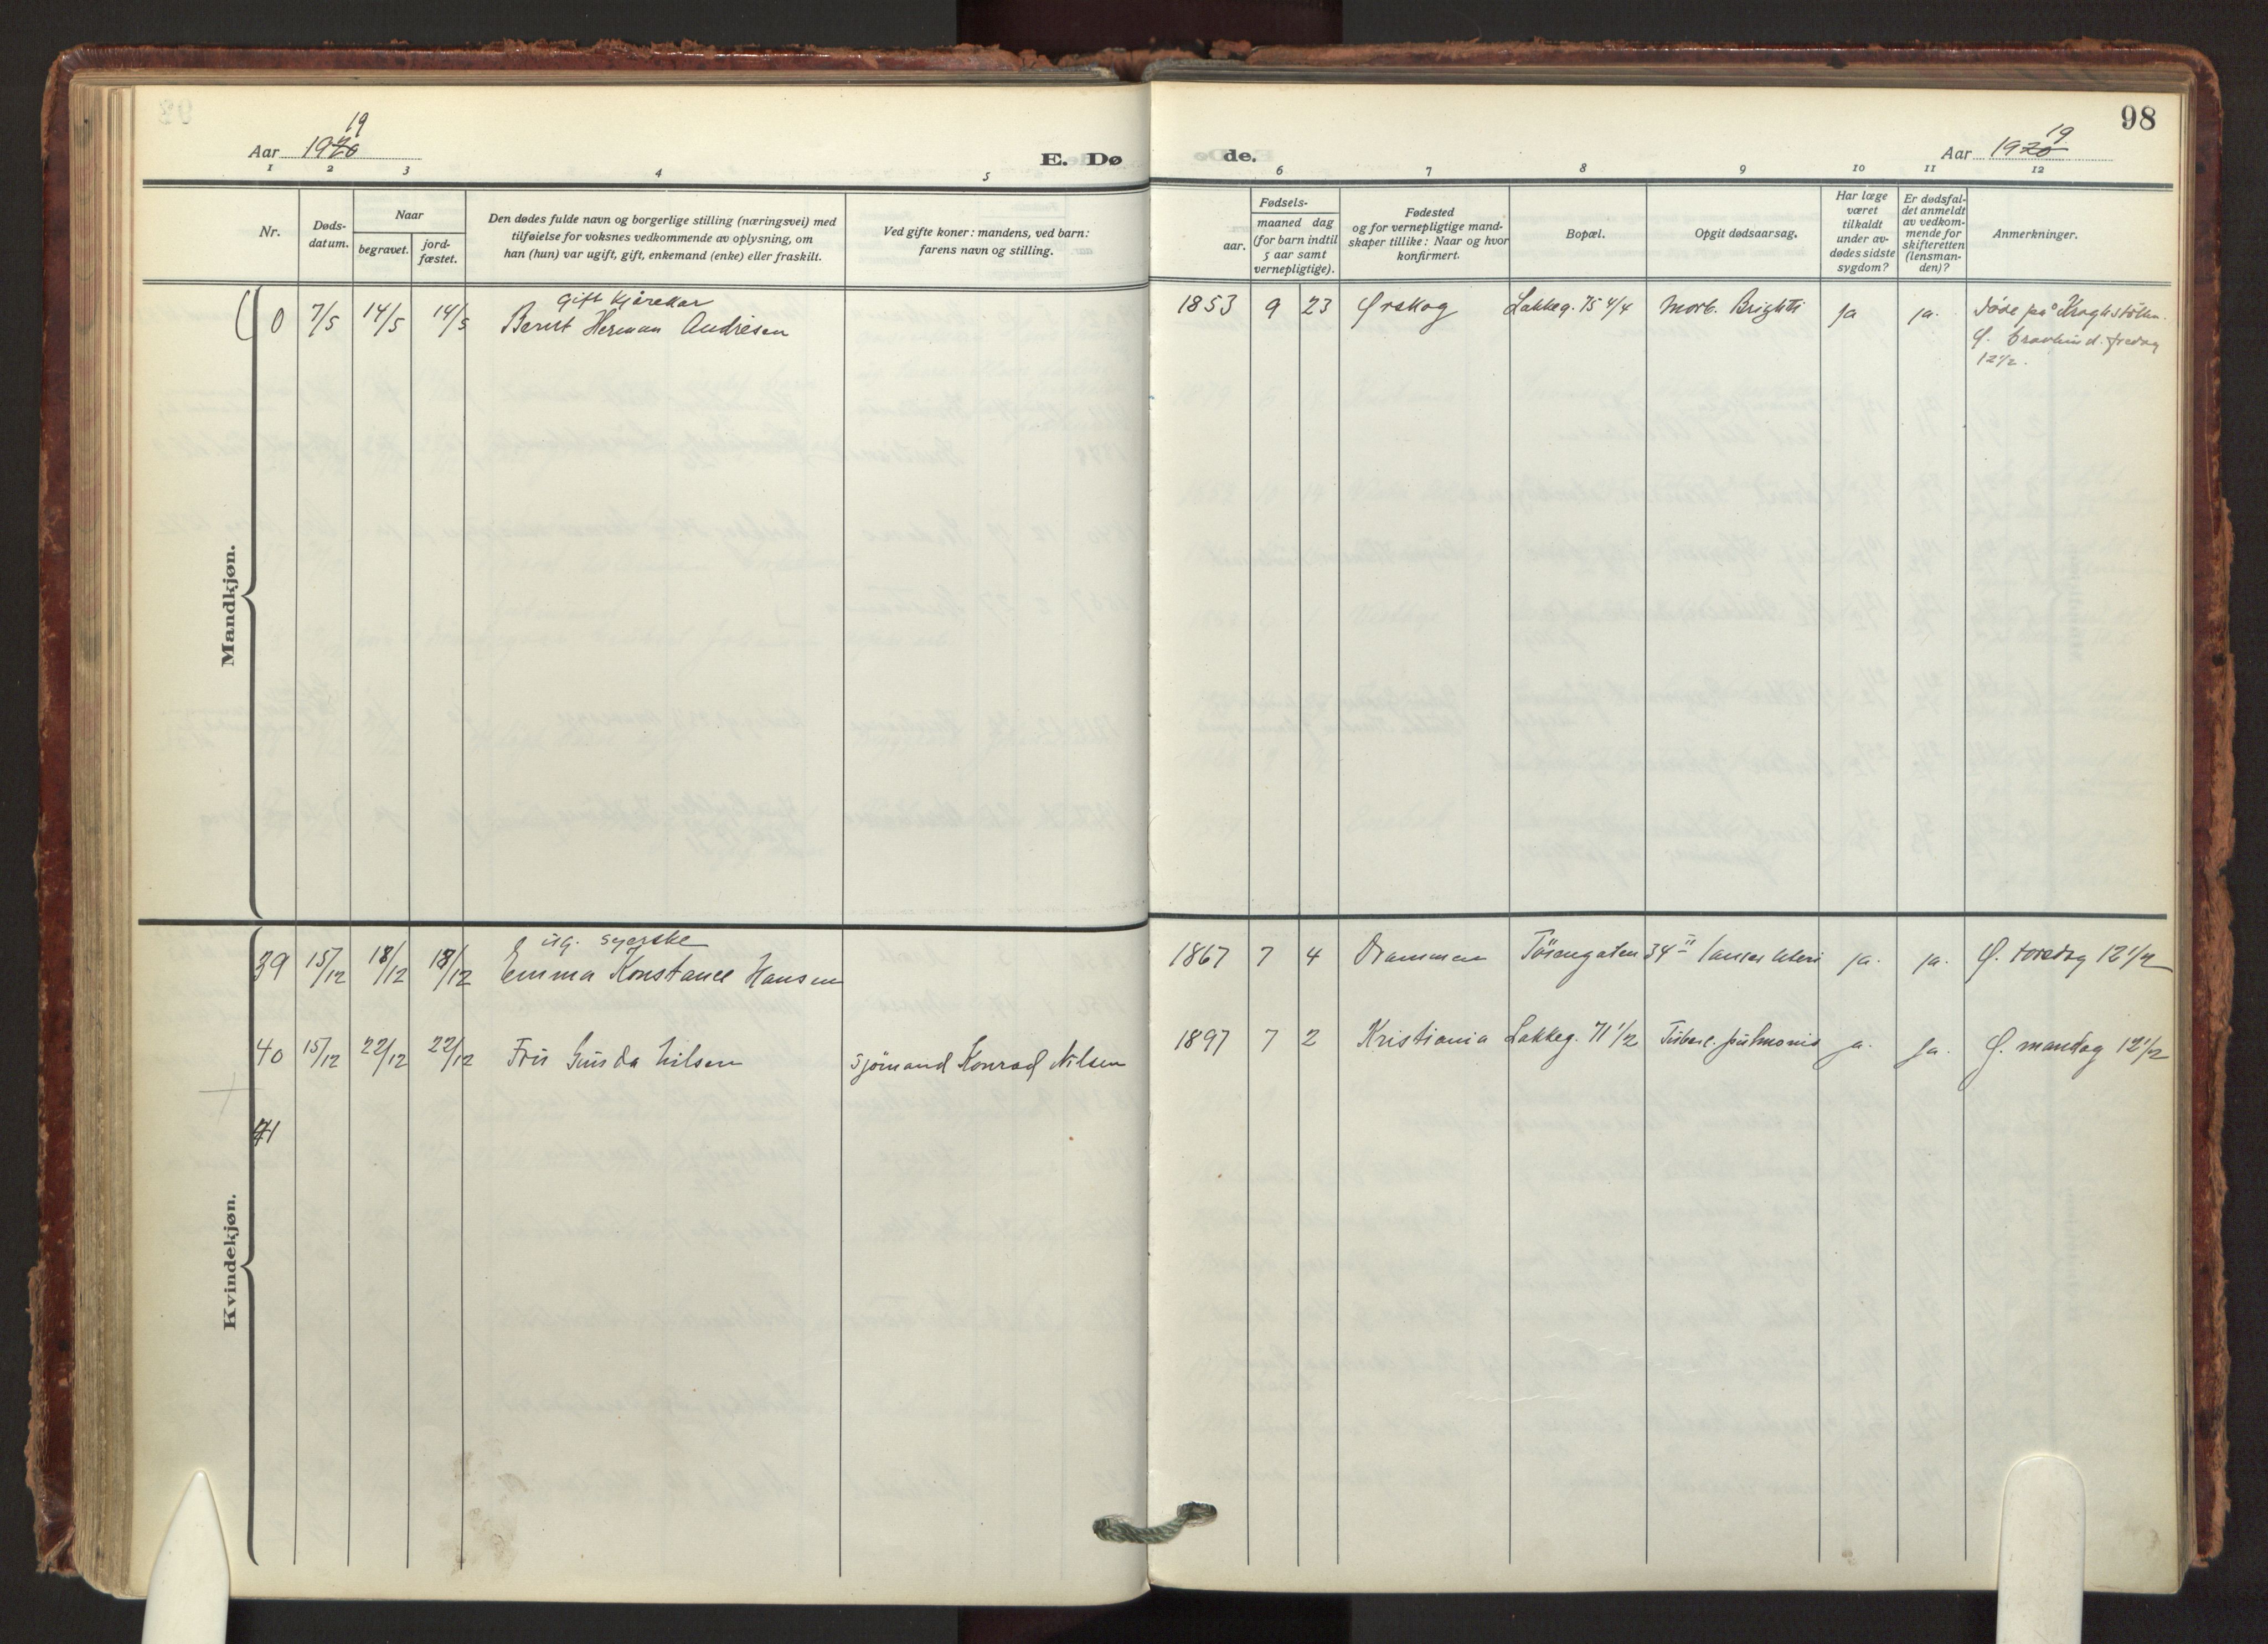 98
Aar 1920 19
E. Døde.
Aar 1920 19
1 2 3 4 5 6 7 8 9 10 11 12
Nr.
Døds-
datum.
Naar
begravet.
jord-
fæstet.
Den dødes fulde navn og borgerlige stilling (næringsvei) med
tilføielse for voksnes vedkommende av oplysning, om
han (hun) var ugift, gift, enkemand (enke) eller fraskilt.
Ved gifte koner: mandens, ved barn:
farens navn og stilling.
Fødsels-
aar.
maaned dag
(for barn indtil
5 aar samt
vernepligtige).
Fødested
og for vernepligtige mand-
skaper tillike: Naar og hvor
konfirmert.
Bopæl.
Opgit dødsaarsag.
Har læge
været
tilkaldt
under av-
dødes sidste
sygdom?
Er dødsfal-
det anmeldt
av vedkom-
mende for
skifteretten
(lensman-
den)?
Anmerkninger.
Mandkjøn.
gift kjørekar
0 7/5 14/5 14/5 Bernt Herman Andresen 1853 9 23 Ørskog Lakkeg. 75 4/4 Morb. Brightii ja ja. Døde på Kroghstøtten.
fredag
12 1/2.
Kvindekjøn.
ug. syerske
39 15/12 18/12 18/12 Emma Konstance Hansen 1867 7 4 Drammen Tøiengaten 34 II cancer uteri ja. ja. Ø. torsdag 12 1/2
40 15/12 22/12 22/12 Nilsen Sjømand Konrad Nilsen 1897 7 2 Kristiania Lakkeg. 71 1/2 Tuberc. pulmonis ja. ja. Ø. mandag 12 1/2
41